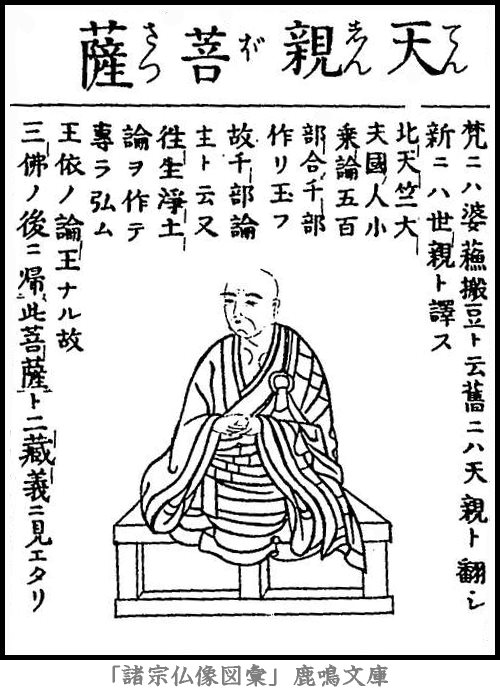 天親菩薩
てんしんぼさつ
梵ニハ婆蘓搬豆ト云舊ニハ天親ト翻シ
新ニハ世親ト譯ス
北天竺大
夫國人小
乗論五百
部合千部
作リ玉フ
故千部論
主ト云又
徃生淨土
論ヲ作テ
專ラ弘ム
王依ノ論王ナル故
三佛ノ後ニ帰此菩薩ト二藏義ニ見エタリ
「諸宗仏像図彙」鹿鳴文庫